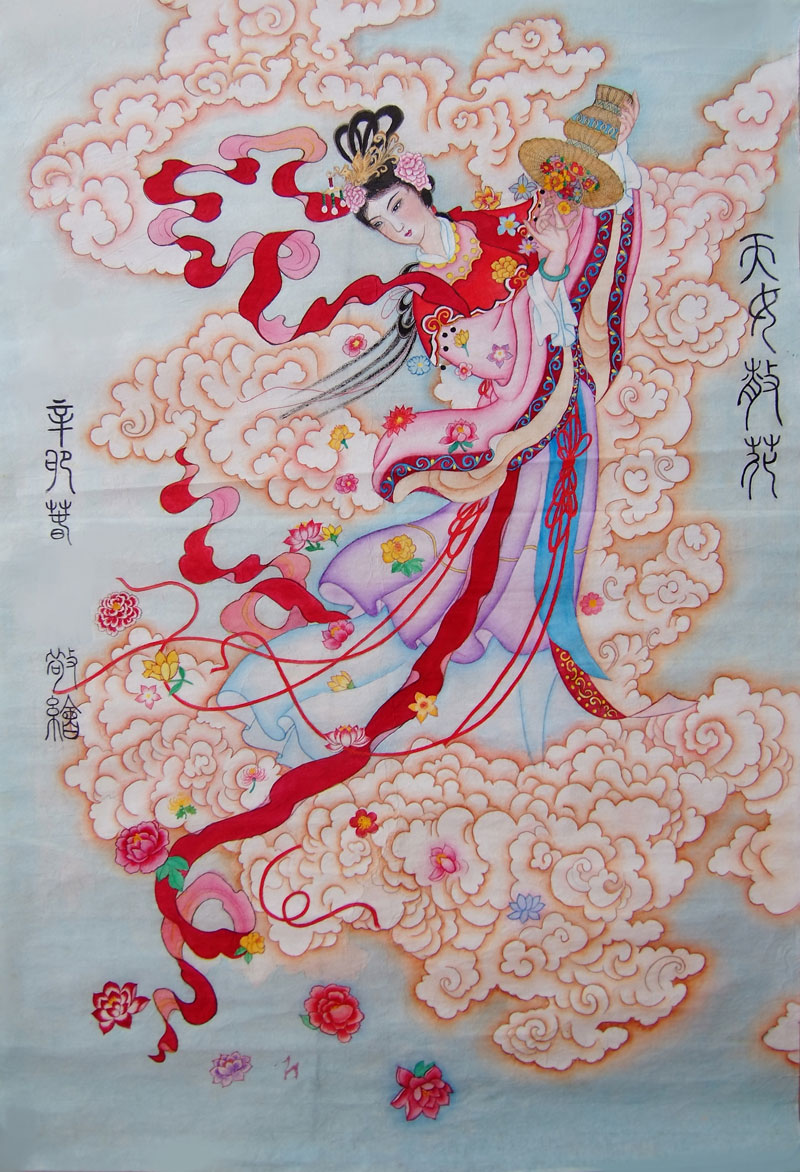 天女散花
辛卯春
敬繪